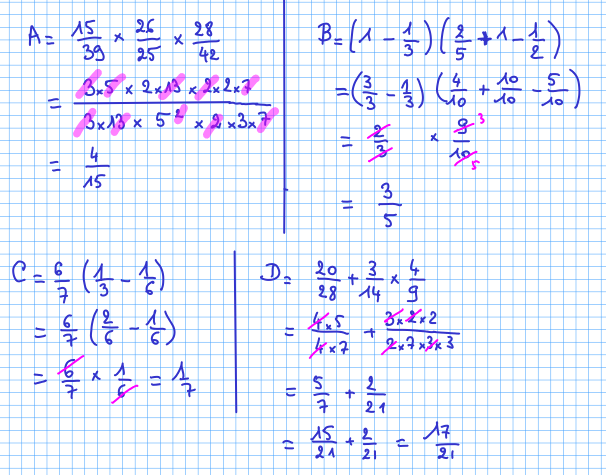 A = 15/39 × 26/25 × 28/42
= 3×5 × 2×13 × 2×2×7 / 3×13 × 5² × 2×3×7
= 4/15
B = (1 - 1/3) (2/5 + 1 - 1/2)
= (3/3 - 1/3) (4/10 + 10/10 - 5/10)
= 2/3 × 9/10 3 5
= 3/5
C = 6/7 (1/3 - 1/6)
= 6/7 (2/6 - 1/6)
= 6/7 × 1/6 = 1/7
D = 20/28 + 3/14 × 4/9
= 4×5 / 4×7 + 3×2×2 / 2×7×3×3
= 5/7 + 2/21
= 15/21 + 2/21 = 17/21